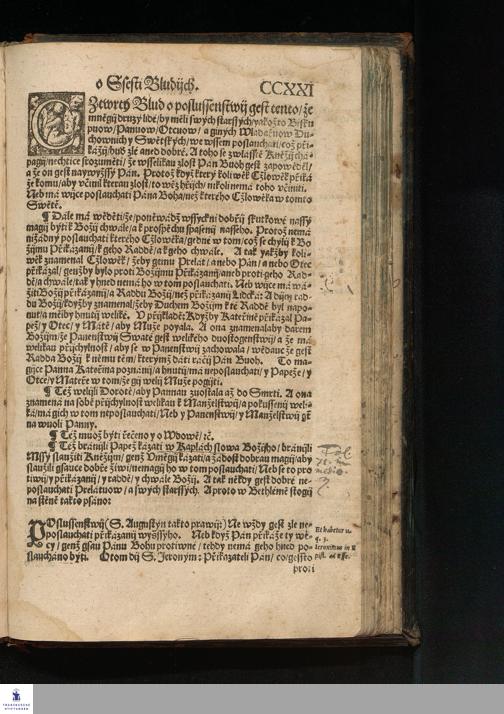 o Ssesti Bludijch. CCXXI
CZtwrtý Blud o poslussenstwij gest tento / že
mnězij druzý lidé / by měli swých starssých / yakožto Bisku
puow / Panuow / Otcuow / a giných Wladařuow Du-
chownijch y Swětských / we wssem poslauchati / což při-
káží / buď zlé aneb dobré. A toho se zwlásstě Kněžij cha-
pagij / nechtice srozuměti / že wsselikau zlost Pán Buoh gest zapowěděl /
a že on gest naywyžssý Pán. Protož když který koliwěk Cžlowěk přiká
že komu / aby včinil kteran zlost / to wěz hřijch / nikoli nemá toho včiniti.
Neb má wijce poslauchati Pána Boha / než kterého Cžlowěka w tomto
Swětě.
¶ Dále má wěděti / že / poněwádž wssyckni dobřij skutkowé nassý
magij býti k Božij chwále / a k prospěchu spasenij nasseho. Protož nemá
nižádný poslauchati kterého Cžlowěka / gedné w tom / což se chýlij k Bo
žijmu Přikázanij / k geho Raddě / a k geho chwále. A tak yakžby koli-
wěk znamenal Cžlowěk / žeby gemu Prelát / a nebo Pán / a nebo Otec
přikázal / genžby bylo proti Božijmu Přikázanij / aneb proti geho Rad-
dě / a chwále / tak y hned nemá ho w tom poslauchati. Neb wijce má wá-
žiti Božij přikázanij / a Raddu Božij / než přikázanij Lidská:
du Božij / když by znamenal / žeby Duchem Božijm k té Raddě byl napo-
nut / a měl by hnutij weliké. V přijkladě: Když by Kateřině přikázal Pa-
pež / y Otec / y Mátě / aby Muže poyala. A ona znamenala by darem
Božijm / že Panenstwij Swaté gest welikého duostogenstwij / a že má
welikau přijchylnost / aby se w Panenstwij zachowala / wěduc že gest
Radda Božij k němu těm / kterýmž dáti račij Pán Buoh. To ma-
gijce Panna Kateřina poznánij / a hnutij / má neposlauchati / y Papeže / y
Otce / y Mateře w tom / že gij welij Muže pogijti.
¶ Též welijli Dorotě / aby Pannau zuostala až do Smrti. A ona
znamená na sobě přijchylnost welikau k Manželstwij / a pokussenij weli-
ká / má gich w tom neposlauchati / Neb y Panenstwij / y Manželstwij gt
na wuoli Panny.
¶ Též muož býti řečeno y o Wdowě / tc̄.
¶ Též bránijli Papež kázati w Kaplách slowa Božijho / bránijli
Mssý slaužiti Kněžijm / genž Vmějij kázati / a žádost dobrau magij / aby
slaužili gsauce dobře žiwi / nemagij ho w tom poslauchati / Neb se to pro
tiwij / y přikázanij / y raddě / y chwále Božij. A tak někdy gest dobré ne-
poslauchati Prelátuow / a swých starssých. A proto w Bethlémě stogij
na stěně takto psáno:
POslussenstwij (S. Augustyn takto prawij:) Ne wždy gest zlé ne-
poslauchati přikázanij wyžssýho. Neb když Pán přikáže ty wě-
cy / genž gsau Pánu Bohu protiwné / tehdy nemá geho hned po-
slaucháno býti. O tom dij S. Jeronym: Přikázateli Pán / co / gessto
proti
Et habetur 11.
q. 3.